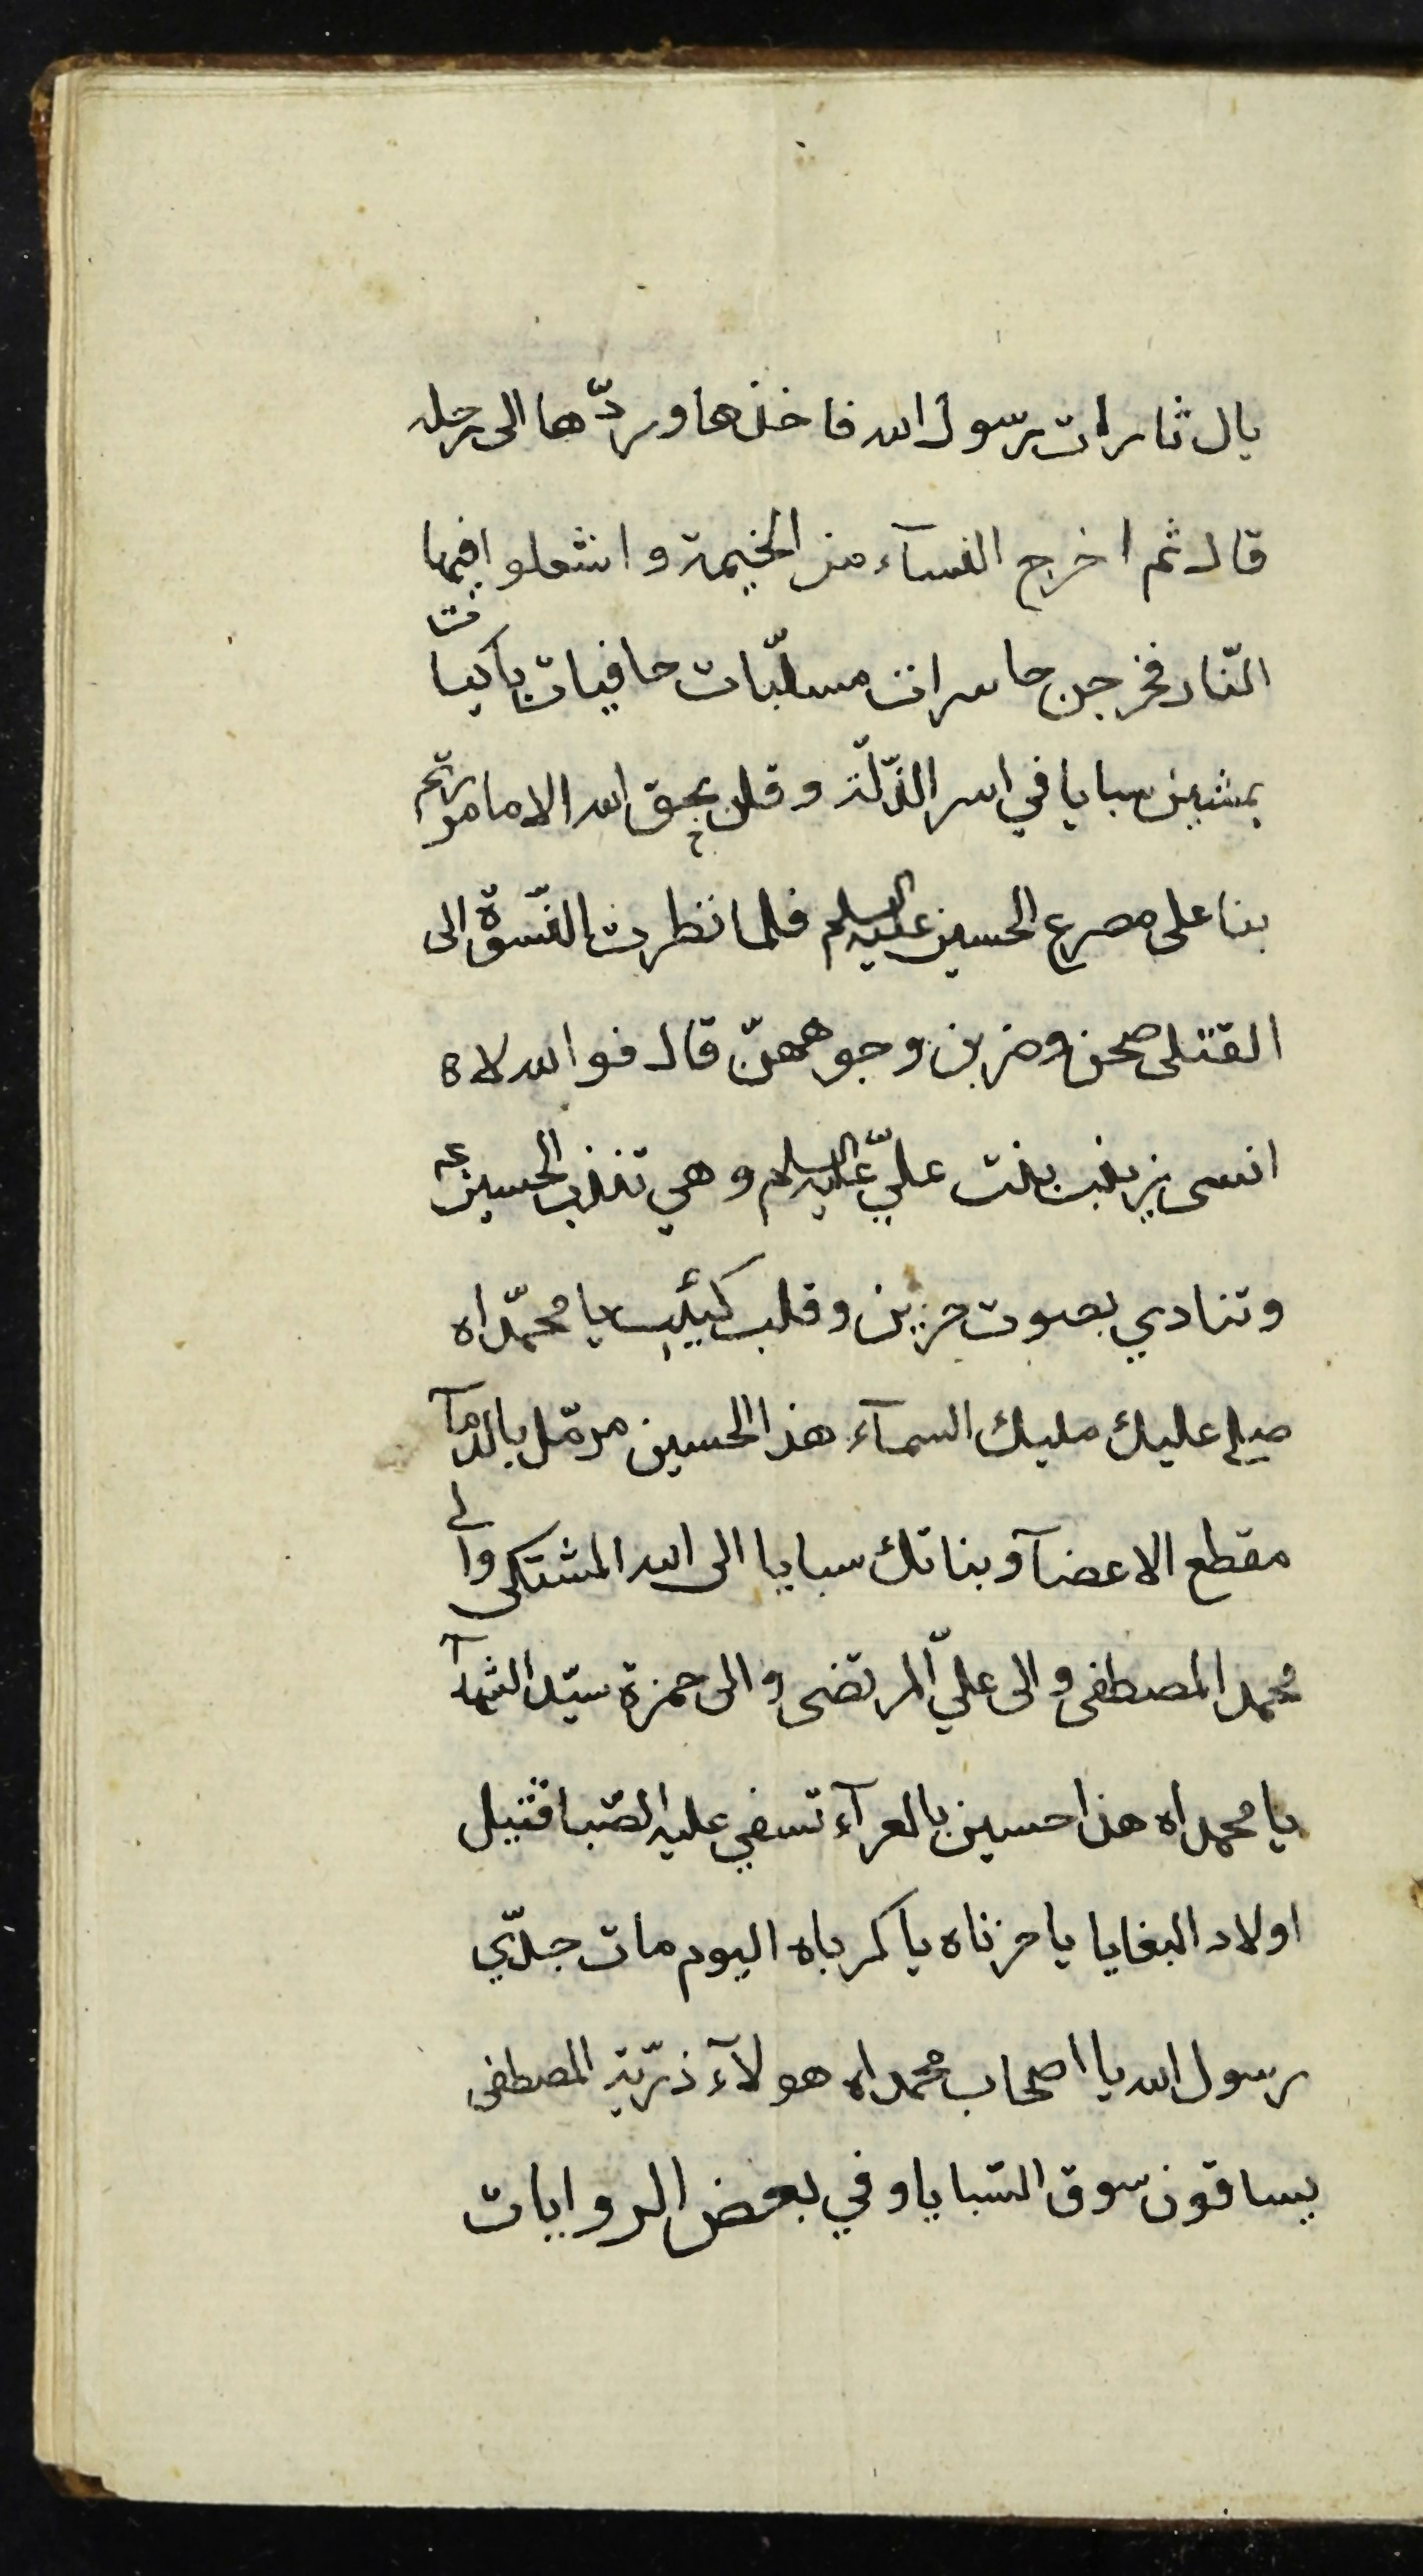 يال ثارات رسول الله فاخذها وردّها الى رحله
قال ثم اخرج النسآء من الخيمة واشعلوا فيها
النّار فخرجن حاسرات مسلّبات حافيات باكيات
يمشين سبايا في اسر الذّلّة وقلن بحق الله الا ما مررتم
بنا على مصرع الحسين عليه السلم فلما نظرت النّسوة الى
القتلى صحن وضربن وجوههنّ قال فوالله لا
انسى زينب بنت عليّ عليه السلم وهي تندب الحسين ع
وتنادي بصوت حزين وقلب كئيب يا محمّداه
صلى عليك مليك السمآء هذا الحسين مرمّل بالدمآ
مقطع الاعضآ وبناتك سبايا الى الله المشتكى والى
محمد المصطفى والى عليّ المرتضى والى حمزة سيّد الشهدآ
يا محمداه هذا حسين بالعرآء تسفي عليه الصّبا قتيل
اولاد البغايا يا حزناه يا كرباه اليوم مات جدّي
رسول الله يا اصحاب محمداه هولآء ذرّية المصطفى
يساقون سوق السّبايا وفي بعض الروايات